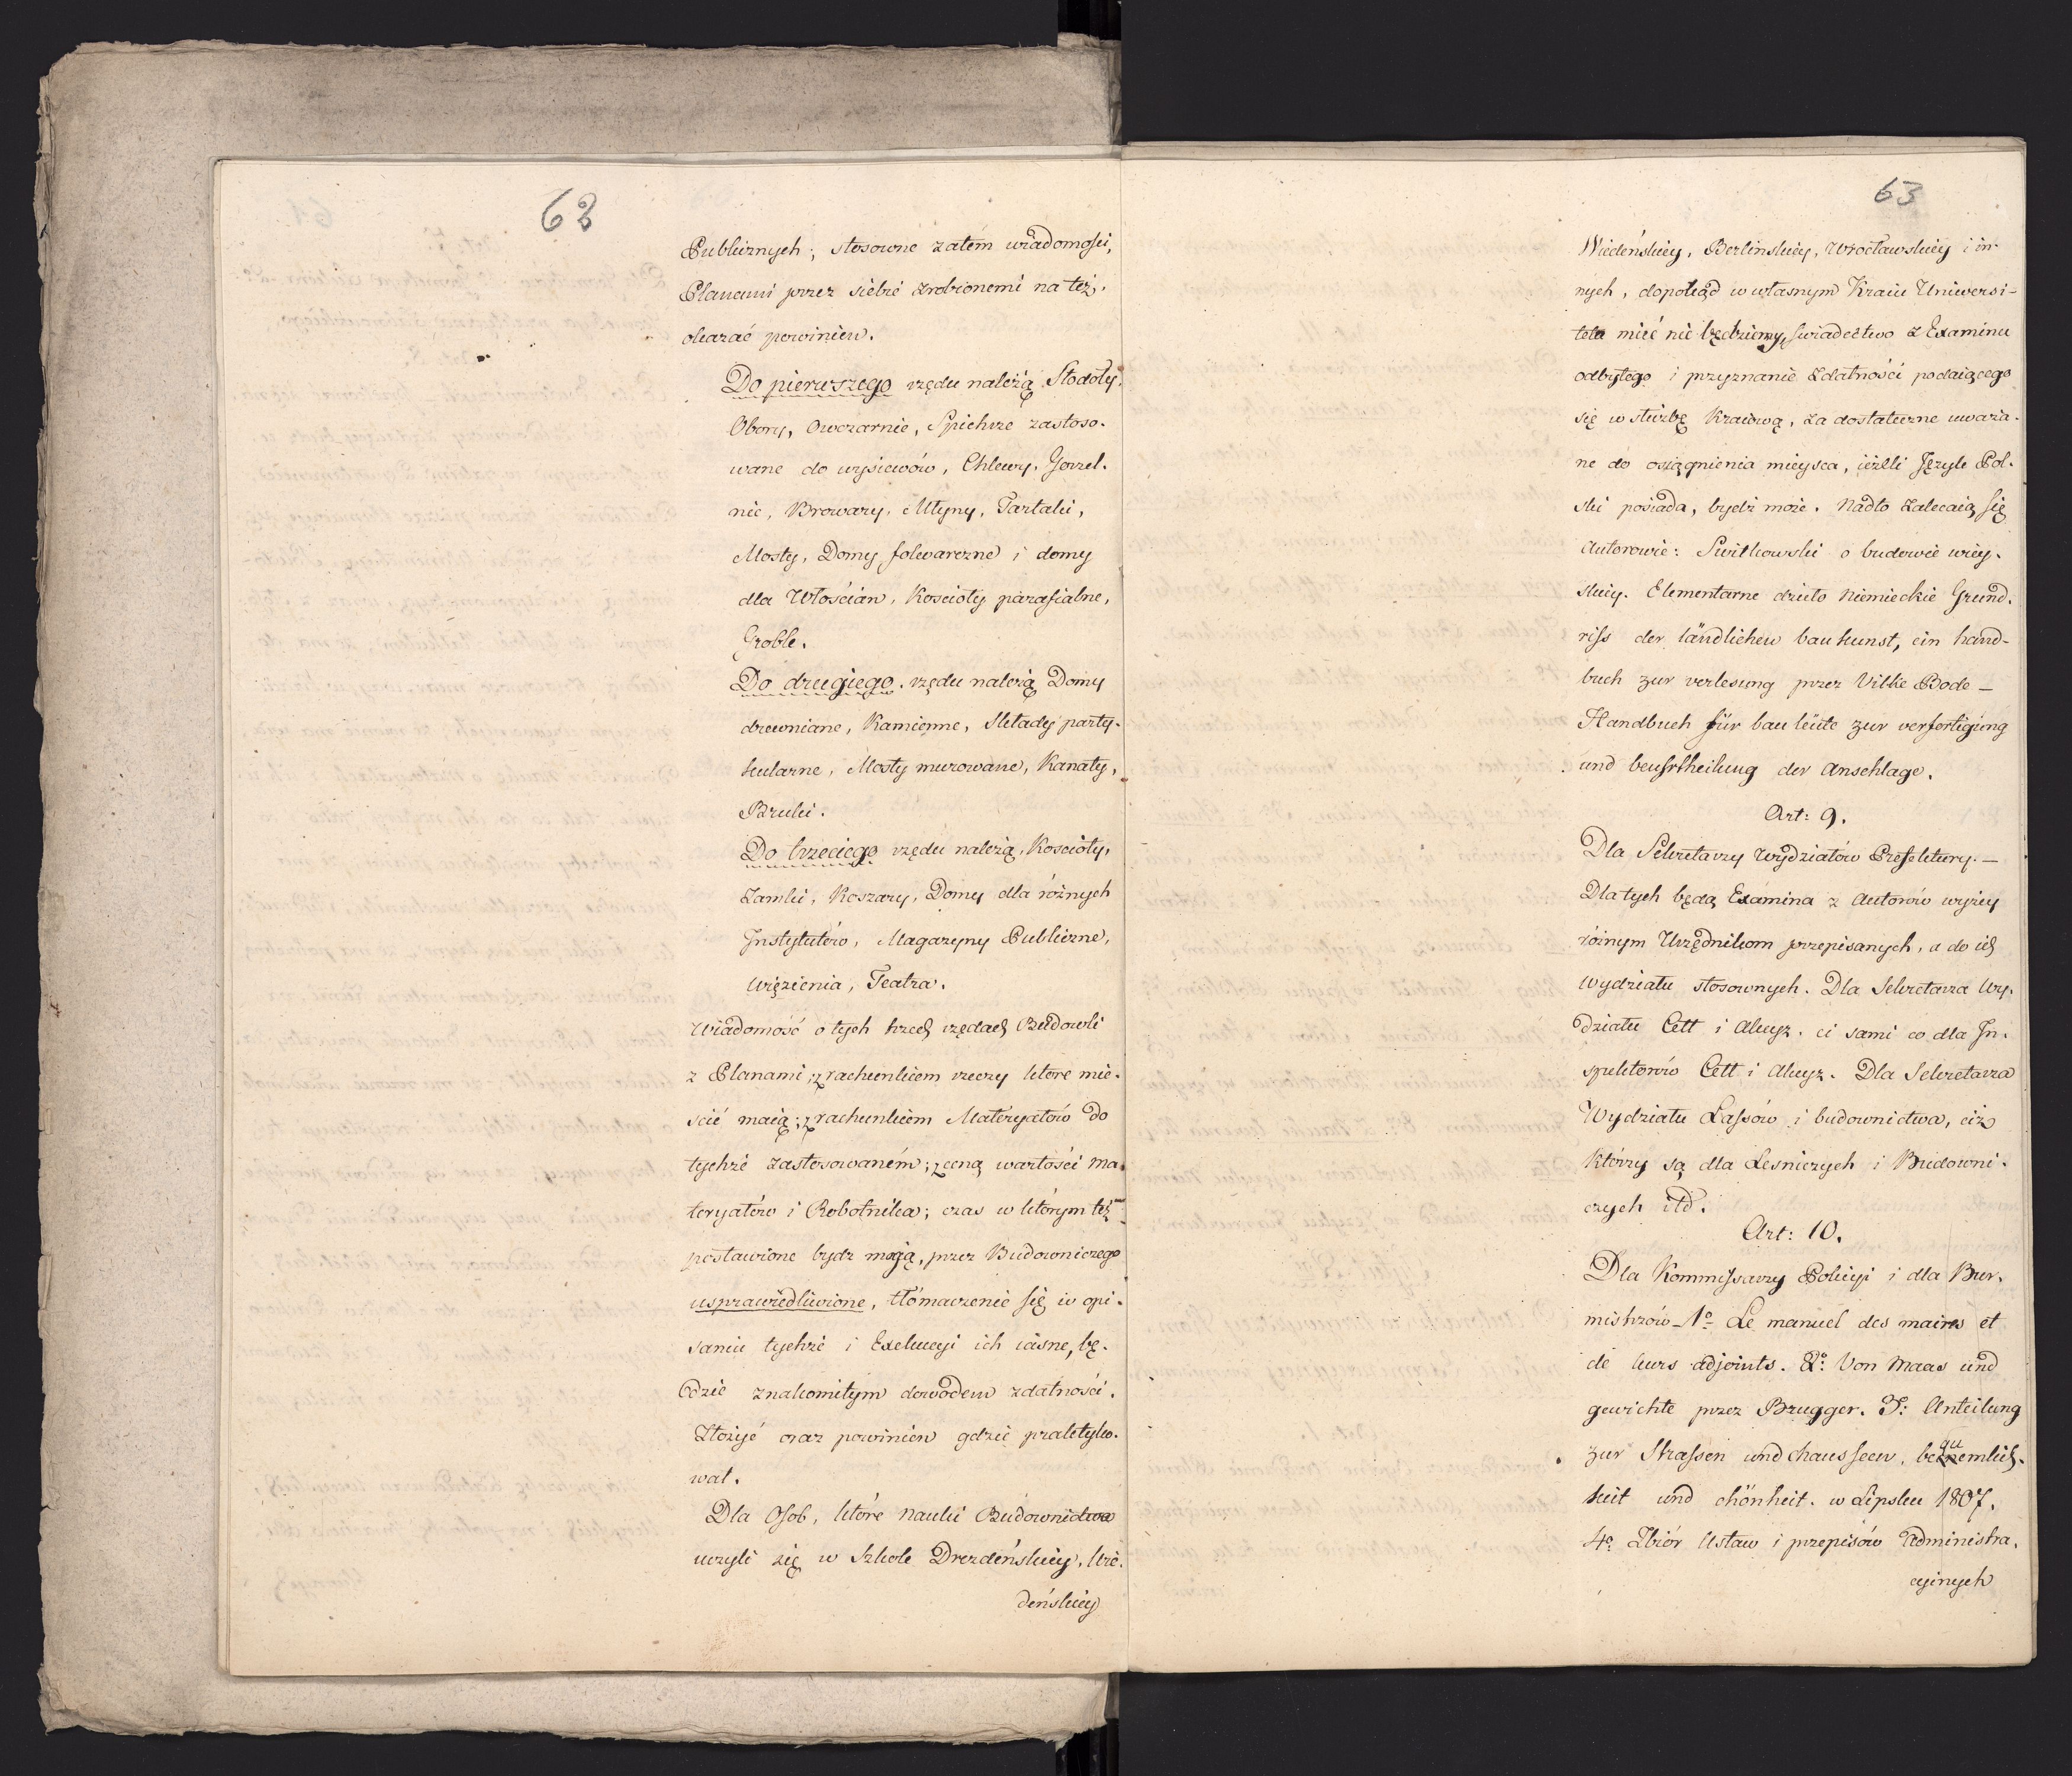 62
Publicznych; stosowne zatem wiadomości,
Planami przez siebie zrobionemi na też,
okazać powinien.
Do pierwszego rzędu należą Stodoły,
Obory, Owczarnie, Spichrze zastoso-
wane do wysiewów, Chlewy, Gorzel-
nie, Browary, Młyny, Tartaki,
Mosty, Domy folwarczne i domy
dla Włościan, Kościoły parafialne,
Groble.
Do drugiego rzędu należą Domy
drewniane, Kamienne, Składy party-
kularne, Mosty murowane, Kanały,
Bruki.
Do trzeciego rzędu należą, Kościoły,
Zamki, Koszary, Domy dla różnych
Instytutów, Magazyny Publiczne,
więzienia, Teatra.
Wiadomość o tych trzech rzędach Budowli
z Planami, z rachunkiem rzeczy które mie-
ścić maią; z rachunkiem Materyałów do
tychże zastosowaném; z ceną wartości Ma-
teryałów i Robotnika; czas w którym też
postawione bydź mogą, przez Budowniczego
usprawiedliwione, tłómaczenie się w opi-
saniu tychże i Exekucyi ich iasne, bę-
dzie znakomitym dowodem zdatności.
Złożyć oraz powinien gdzie praktyko-
wał.
Dla Osob, które nauki Budownictwa
uczyli się w Szkole Drezdeńskiey, Wie-
deńskiey
63
Wiedeńskiey, Berlinskiey, Wrocławskiey i in-
nych, dopokąd w własnym Kraiu Uniwersi-
teta mieć nie będziemy, świadectwo z Examinu
odbytego i przyznanie zdatności podaiącego
się w służbę Kraiową, za dostateczne uważa-
ne do osiągnienia mieysca, ieżeli Język Pol-
ski posiada, bydź może. Nadto zalecaią się
Autorowie: Switkowski o budowie wiey-
skiey. Elementarne dzieło Niemieckie Grund-
riss der ländlichen baukunst, ein hand-
buch zur verlesung przez Vilke Bode —
Handbuch für bau leüte zur verfertigung
und beurtheilung der Anschlage.
Art: 9.
Dla Sekretarzy Wydziałów Prefektury. —
Dla tych będą Examina z Autorów wyżey
różnym Urzędnikom przepisanych, a do ich
Wydziału stosownych. Dla Sekretarza Wy-
działu Cełł i Akcyz. ci sami co dla In-
spektorów Cełł i Akcyz. Dla Sekretarza
Wydziału Lassów i budownictwa, ciż
którzy są dla Lesniczych i Budowni-
czych itd.
Art: 10.
Dla Kommissarzy Policyi i dla Bur-
mistrzów – 1o Le manuel des maires et
de leurs adjoints. 2o: Von Maas und
gewichte przez Brugger. 3: Anteilung
zur Strassen und chausseen,
keit und chönheit. w Lipsku 1807.
4o Zbiór Ustaw i przepisów Administra-
cyinych